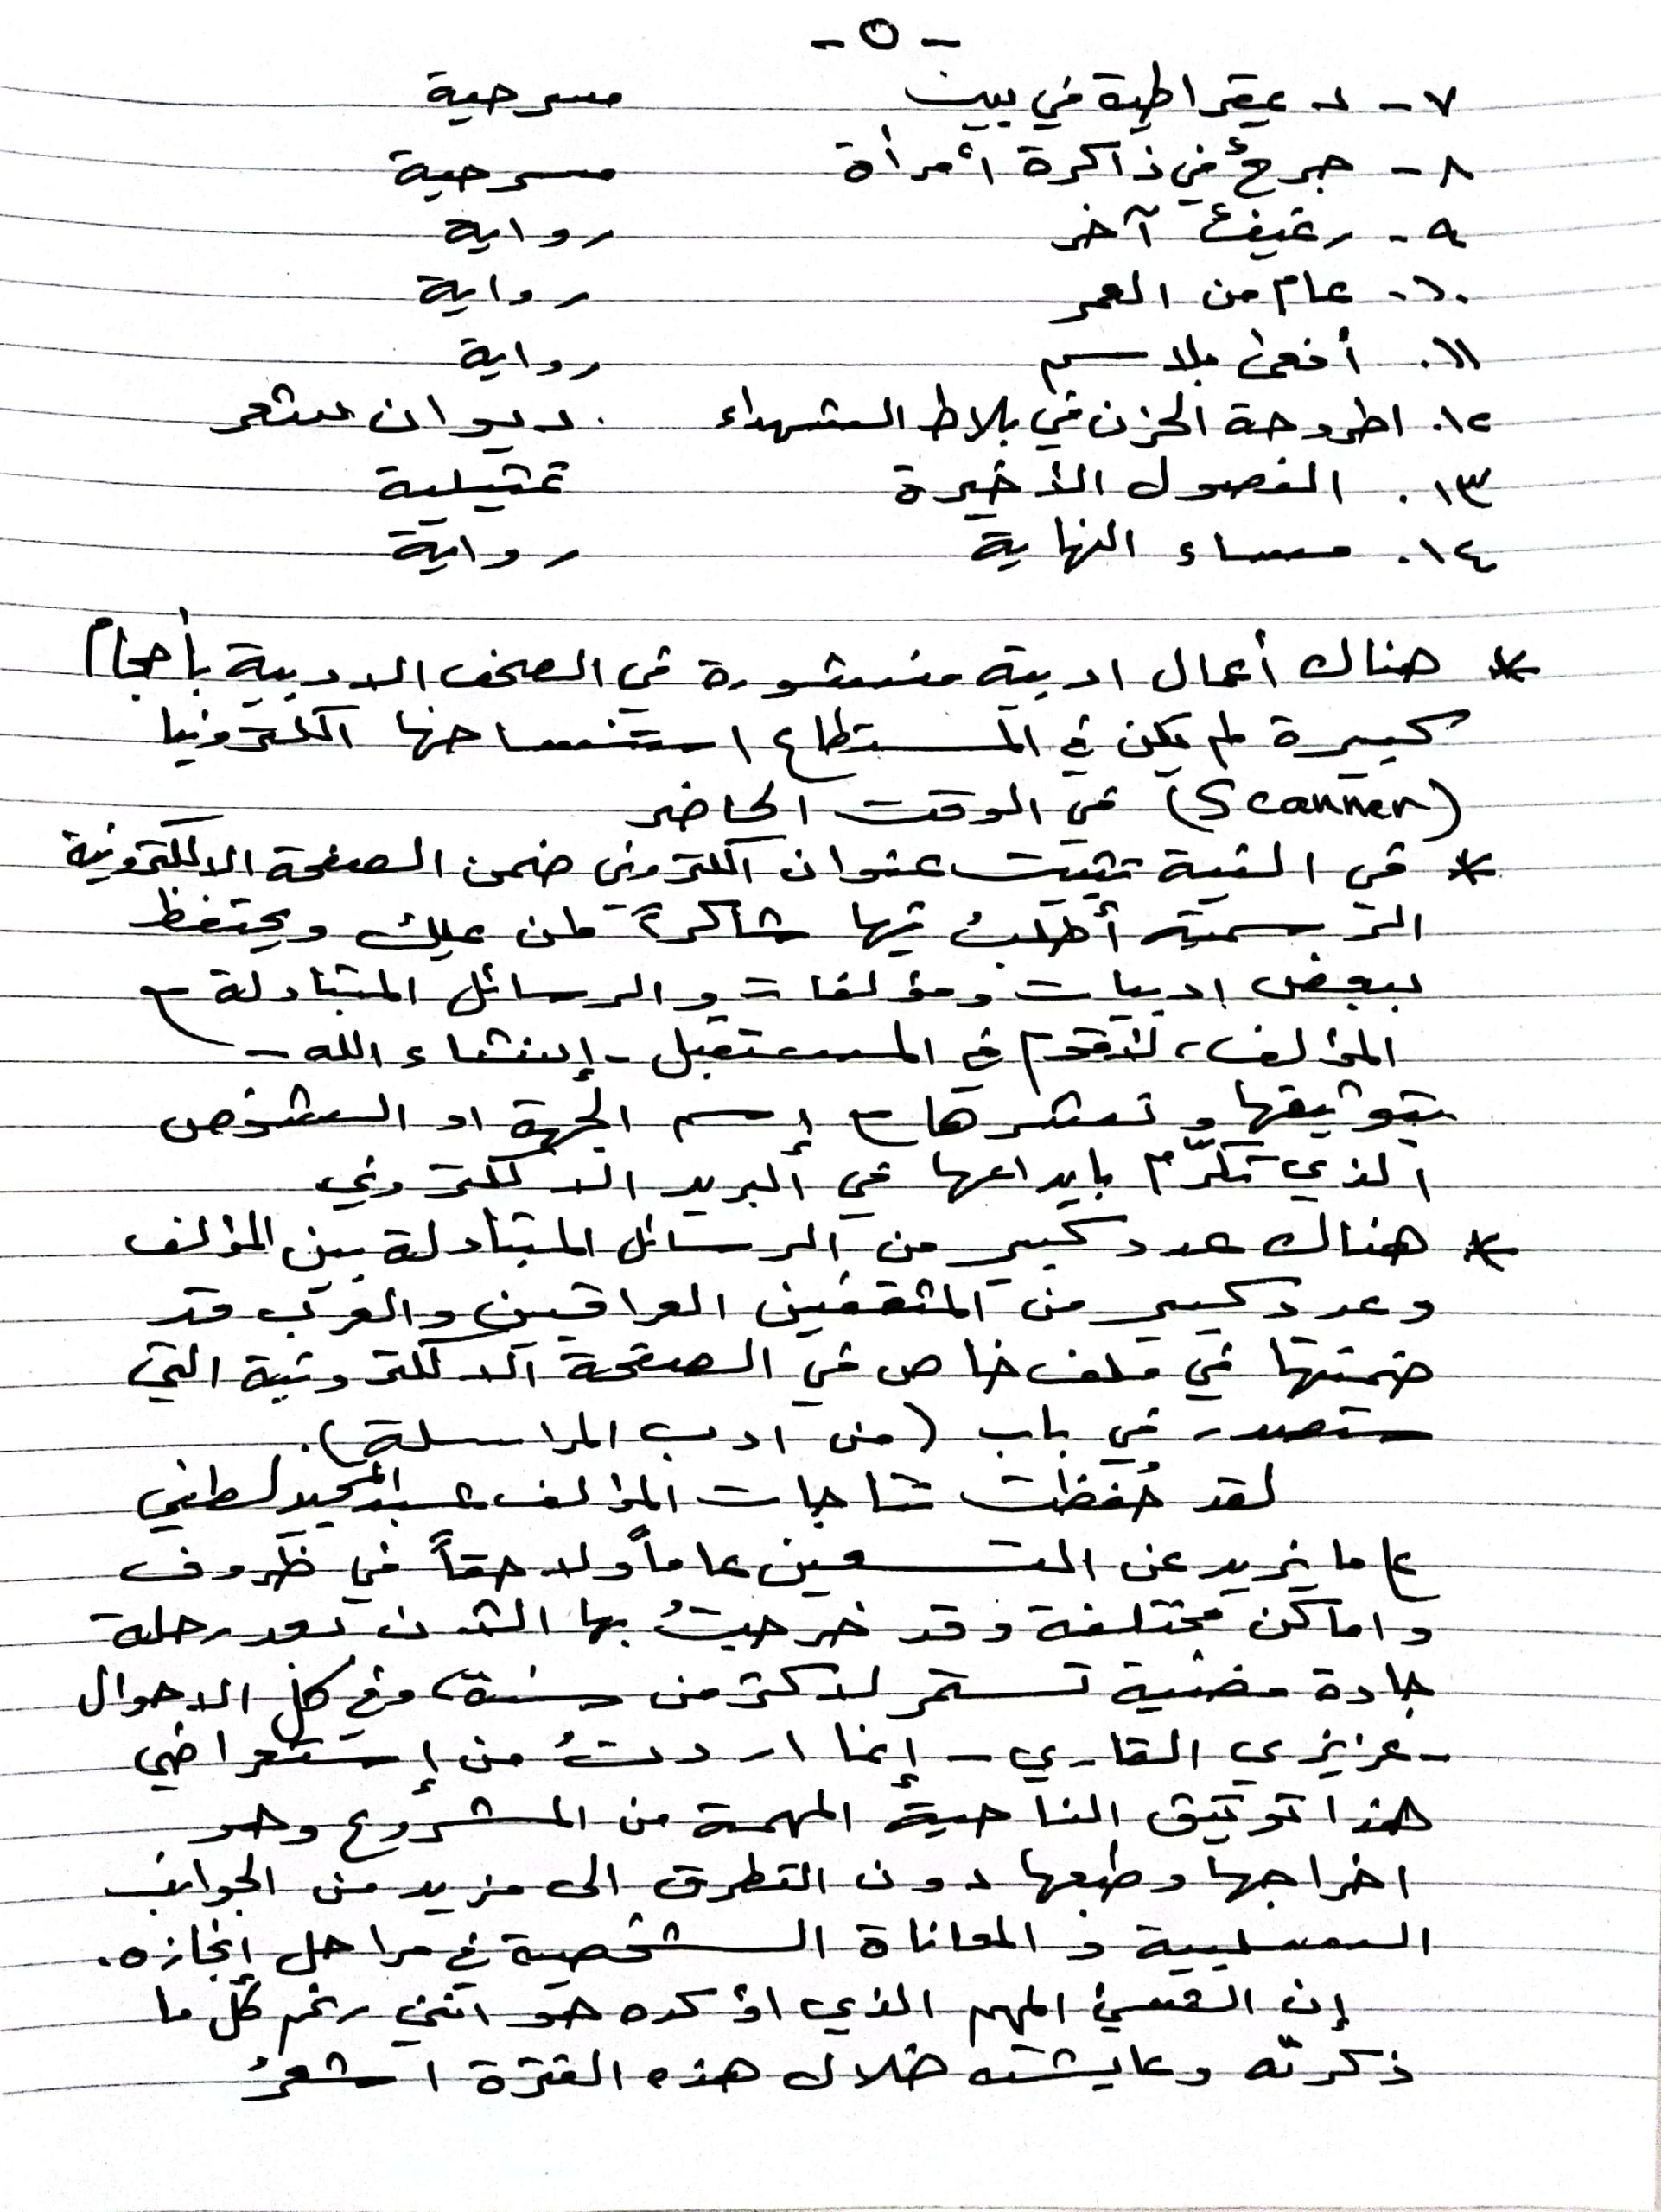 - ٥ -
٧ - ديمقراطية في بيت مسرحية
٨ - جرحٌ في ذاكرة امرأة مسرحية
٩ - رغيفٌ آخر رواية
١٠. عام من العمر رواية
١١. أفعى بلا سم رواية
١٢. اطروحة الحزن في بلاط الشهداء. ديوان شعر
١٣. الفصول الأخيرة تمثيلية
١٤. مساء النهاية رواية
* هناك أعمال ادبية منشورة في الصحف الادبية بأحجام
كبيرة لم يكن في المستطاع استنساخها الكترونيا
(Scanner) في الوقت الحاضر
* في النية تثبيت عنوان الكتروني ضمن الصفحة الالكترونية
الرسمية أطلبُ فيها شاكراً لمن يملك ويحتفظ
ببعض ادبيات ومؤلفات والرسائل المتبادلة مع
المؤلف، لأقوم في المستقبل - إنشاء الله -
بتوثيقها ونشرها مع إسم الجهة او الشخص
الذي تكرّم بايداعها في البريد الالكتروني
* هناك عدد كبير من الرسائل المتبادلة بين المؤلف
وعدد كبير من المثقفين العراقيين والعرب قد
ضمنتها في ملف خاص في الصفحة الالكترونية التي
ستصدر في باب (من ادب المراسلة).
لقد حُفظت نتاجات المؤلف عبدالمجيد لطفي
ع ما يزيد عن التسعين عاماً ولاحقاً في ظروف
واماكن مختلفة وقد خرجتُ بها الآن بعد رحلة
جادة مضنية تستمر لاكثر من سنة، وفي كل الاحوال
- عزيزي القاريء - إنما اردتُ من إستعراضي
هذا توثيق الناحية المهمة من المشروع وهو
اخراجها وطبعها دون التطرق الى مزيد من الجوانب
السلبية و المعاناة الشخصية في مراحل إنجازه.
إن الشيء المهم الذي اؤكده هو انني رغم كل ما
ذكرته وعايشته خلال هذه الفترة اشعرُ